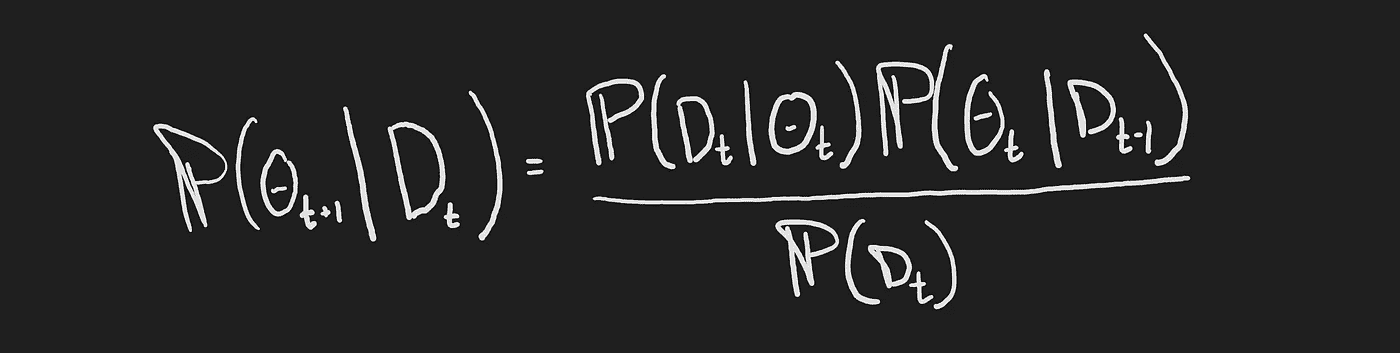 ℙ(θₜ₊₁|Dₜ) = ℙ(Dₜ|θₜ)ℙ(θₜ|Dₜ₋₁)
ℙ(Dₜ)